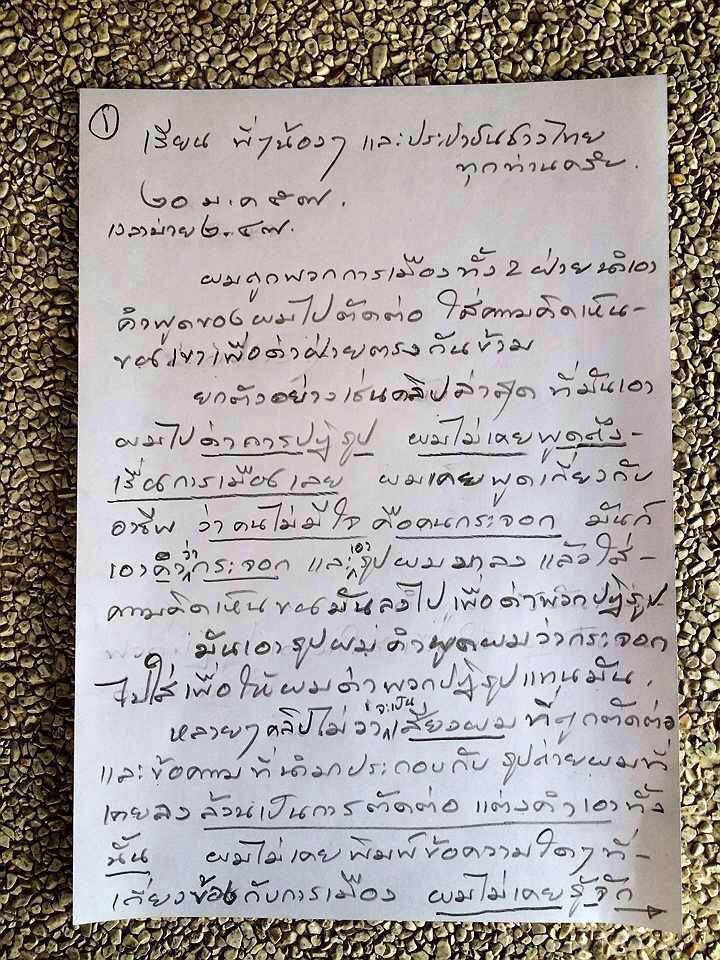 ๑
เรียน พี่ๆน้องๆ และประชาชนชาวไทย
ทุกท่านครับ.
๒๐ ม.ค ๕๗.
เวลาบ่าย ๒.๔๗.
ผมถูกพวกการเมืองทั้ง 2 ฝ่าย นำเอา
คำพูดของผมไปตัดต่อ ใส่ความคิดเห็น-
ของเขาเพื่อด่าฝ่ายตรงกันข้าม
ยกตัวอย่างเช่นคลิปล่าสุด ที่มันเอา
ผมไปด่าการปฏิรูป ผมไม่เคยพูดถึง-
เรื่องการเมืองเลย ผมเคยพูดเกี่ยวกับ
อาชีพ ว่าคนไม่มีใจ คือคนกระจอก มันก็
เอาคำว่ากระจอก และเอารูปผมมาลง แล้วใส่-
ความคิดเห็นของมันลงไป เพื่อด่าพวกปฏิรูป-
มันเอารูปผม คำพูดผมว่ากระจอก
ไปใส่เพื่อให้ผมด่าพวกปฏิรูปแทนมัน.
หลายๆคลิปไม่ว่าจะเป็นเสียงผม ที่ถูกตัดต่อ
และข้อความที่นำมาประกอบกับ รูปถ่ายผมที่
เคยลง ล้วนเป็นการตัดต่อ แต่งคำเอาทั้ง
นั้น ผมไม่เคยพิมพ์ข้อความใดๆ ที่-
เกี่ยวข้องกับการเมือง ผมไม่เคยรู้จัก